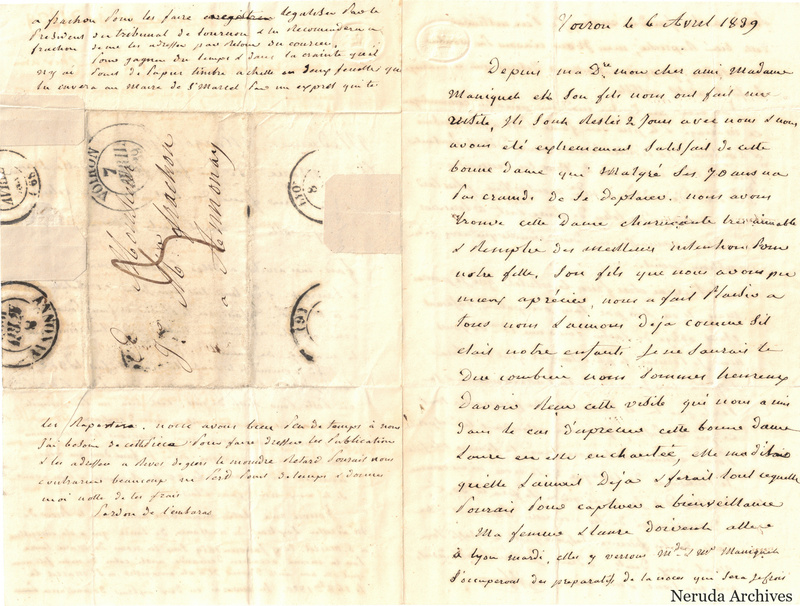 Voiron le 6 Avril 1839
Depuis ma Dre mon cher ami, Madame
Maniquet et son fils nous ont fait une
visite, ils sont restés 2 jours avec nous & nous
avons été extremement satisfait de cette
bonne dame qui Malgré ses 70 ans na
pas craind de se deplacer. nous avons
trouve cette Dame charmante tres aimable
& Remplie des meilleurs intentions Pour
notre fille. Son fils que nous avons pu
mieux aprécier, nous a fait Plaisir a
tous nous L'aimons Deja comme Sil
etait notre enfants Je ne Saurais te
Dire combien nous Sommes heureux
Davoir Recu cette visite qui nous a mis
dans le cas D'aprécier cette bonne Dame
Laure en est enchantée, elle ma dit
qu'elle L'aimait Deja & ferait tout ce quelle
Pourait Pour captiver a bienveillance
Ma femme & Laure doivent aller
à Lyon mardi, elles y verrons Mdme & Mr Maniquet
S'occuperont des preparatifs de la noces qui Sera Je crois
a frachon Pour les faire legaliser Par le
President du tribunal de tournon & tu Recommendera a
frachon de me les adresser par Retour du courier.
Pour gagner du temps & dans la crainte qu'il
n'y ai Point de Papier timbré achette en deux feuilles que
tu envera au Maire de St Marcel Par un exprès qui te
VOIRON 7 AVRIL
Monsieur
Mr frachon
a Annonay
ANNONAY 8 AVRIL
(61)
les Raportera. nous avons bien Peu de temps à nous
J'ai besoin de cette Pieces Pour faire dresser les Publication
& les adresser a Rive de giers le moindre Retard Pourait nous
contrarier beaucoup ne Perd Point de temps & donne
moi notte de tes frais
Pardon de l'embaras
Neruda Archives